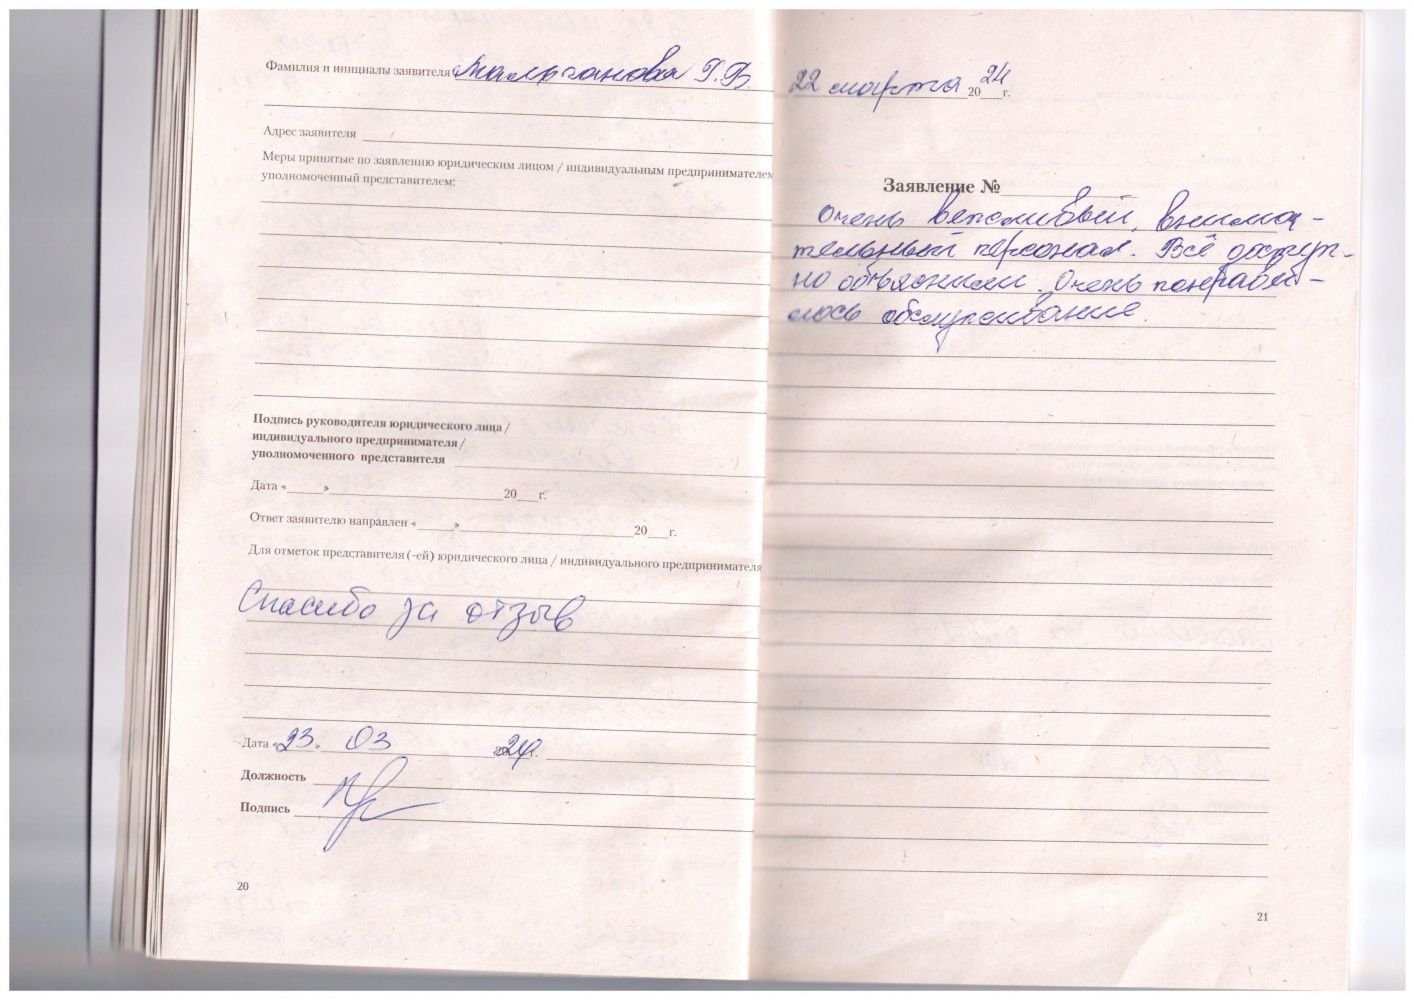 Фамилия и инициалы заявителя Мальганова Г.В.
Адрес заявителя
Меры принятые по заявлению юридическим лицом / индивидуальным предпринимателем
уполномоченный представителем:
Подпись руководителя юридического лица /
индивидуального предпринимателя /
уполномоченного представителя
Дата «______»____________________________20___г.
Ответ заявителю направлен «______»____________________________20___г.
Для отметок представителя (-ей) юридического лица / индивидуального предпринимателя
Спасибо за отзыв
Дата «23» 03 2024г.
Должность
Подпись
20
22 марта 2024г.
Заявление №
Очень вежливый, внима-
тельный персонал. Всё доступ-
но объяснили. Очень понрави-
лось обслуживание.
21